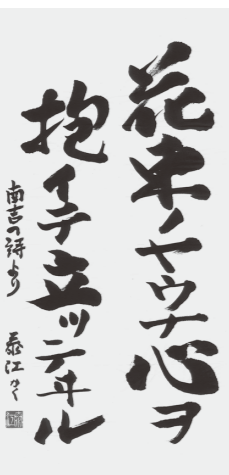 花束ノヤウナ心ヲ
抱イテ立ッテヰル
南吉の詩より
泰江かく